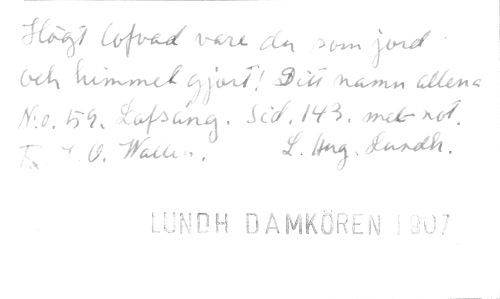 Högt lofvad vare du som jord
och himmel gjort! Ditt namn allena
No. 59. Lofsång. Sid. 143. med not.
O. Wallin. L. Aug. Lundh.
LUNDH DAMKÖREN 1907